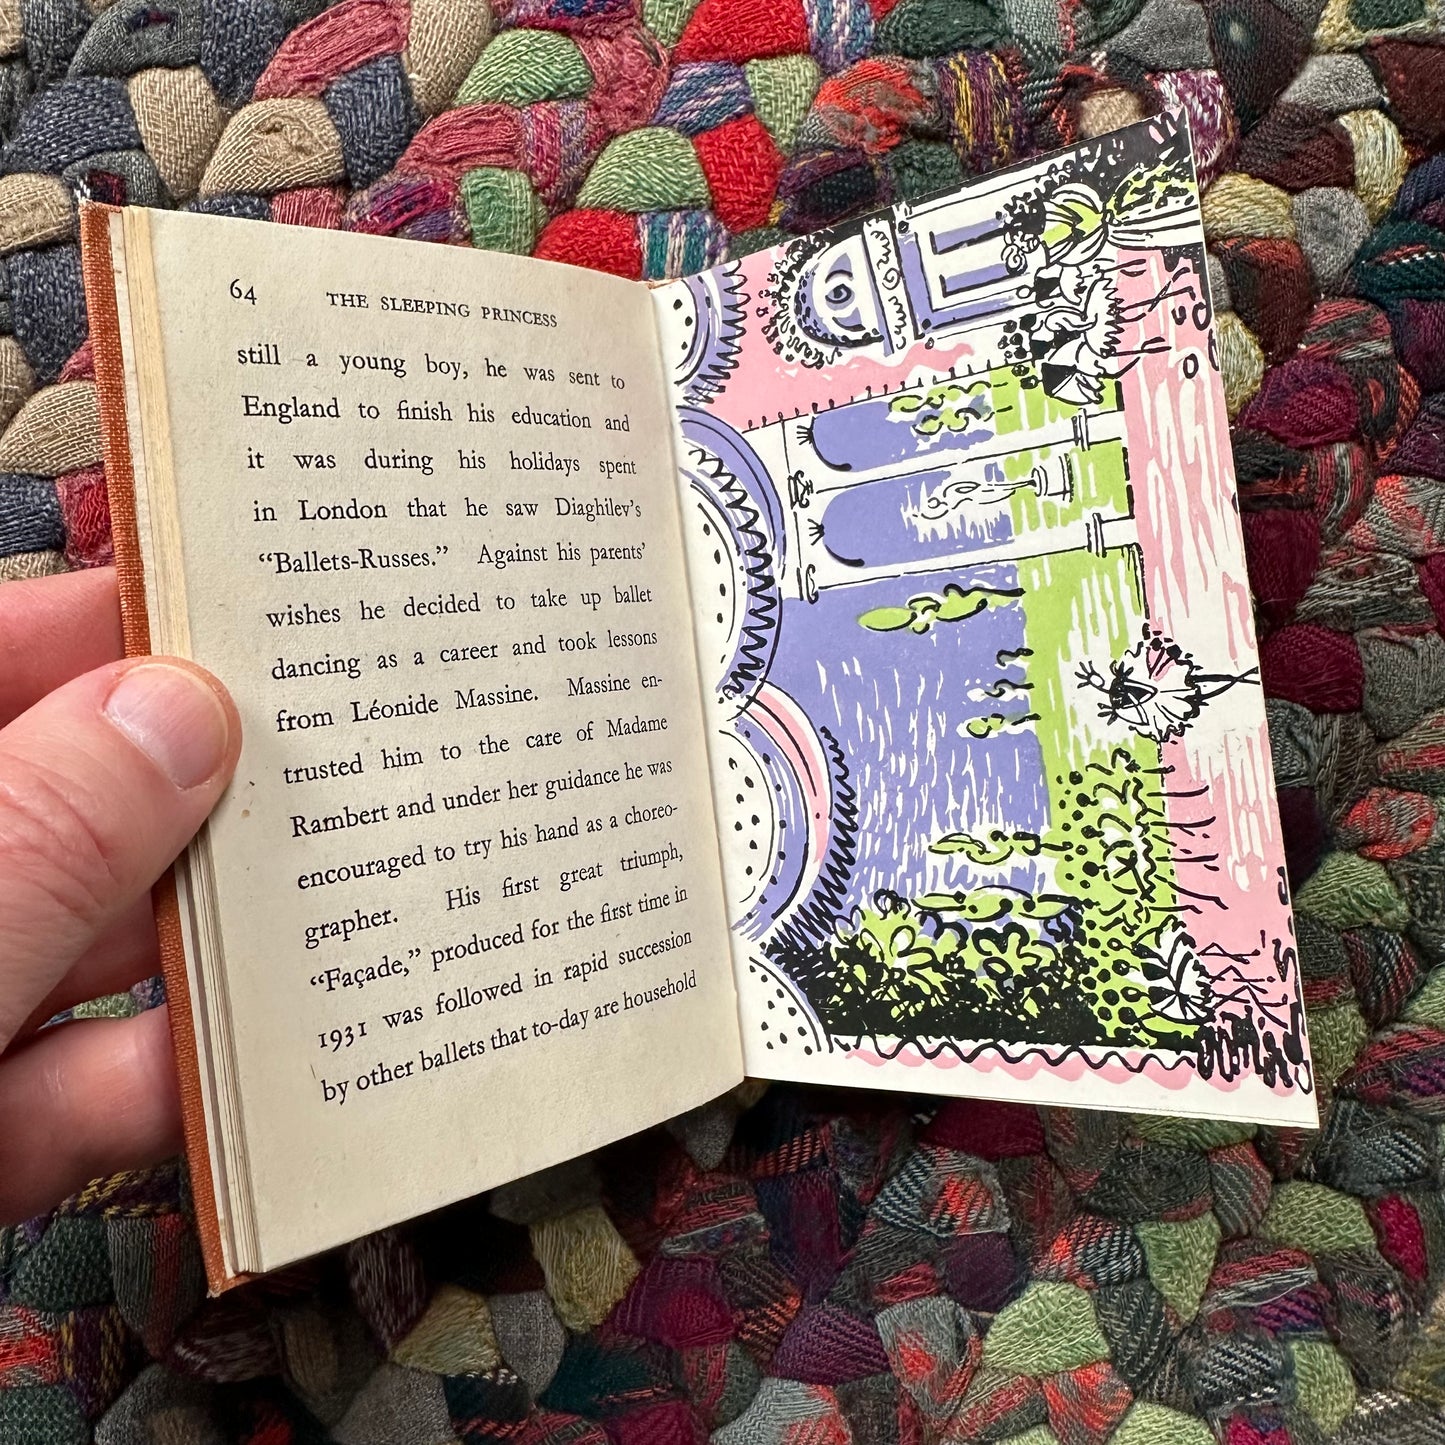 64 THE SLEEPING PRINCESS
still a young boy, he was sent to
England to finish his education and
it was during his holidays spent
in London that he saw Diaghilev's
“Ballets-Russes.” Against his parents'
wishes he decided to take up ballet
dancing as a career and took lessons
from Léonide Massine. Massine en-
trusted him to the care of Madame
Rambert and under her guidance he was
encouraged to try his hand as a choreo-
grapher. His first great triumph,
“Façade,” produced for the first time in
1931 was followed in rapid succession
by other ballets that to-day are household